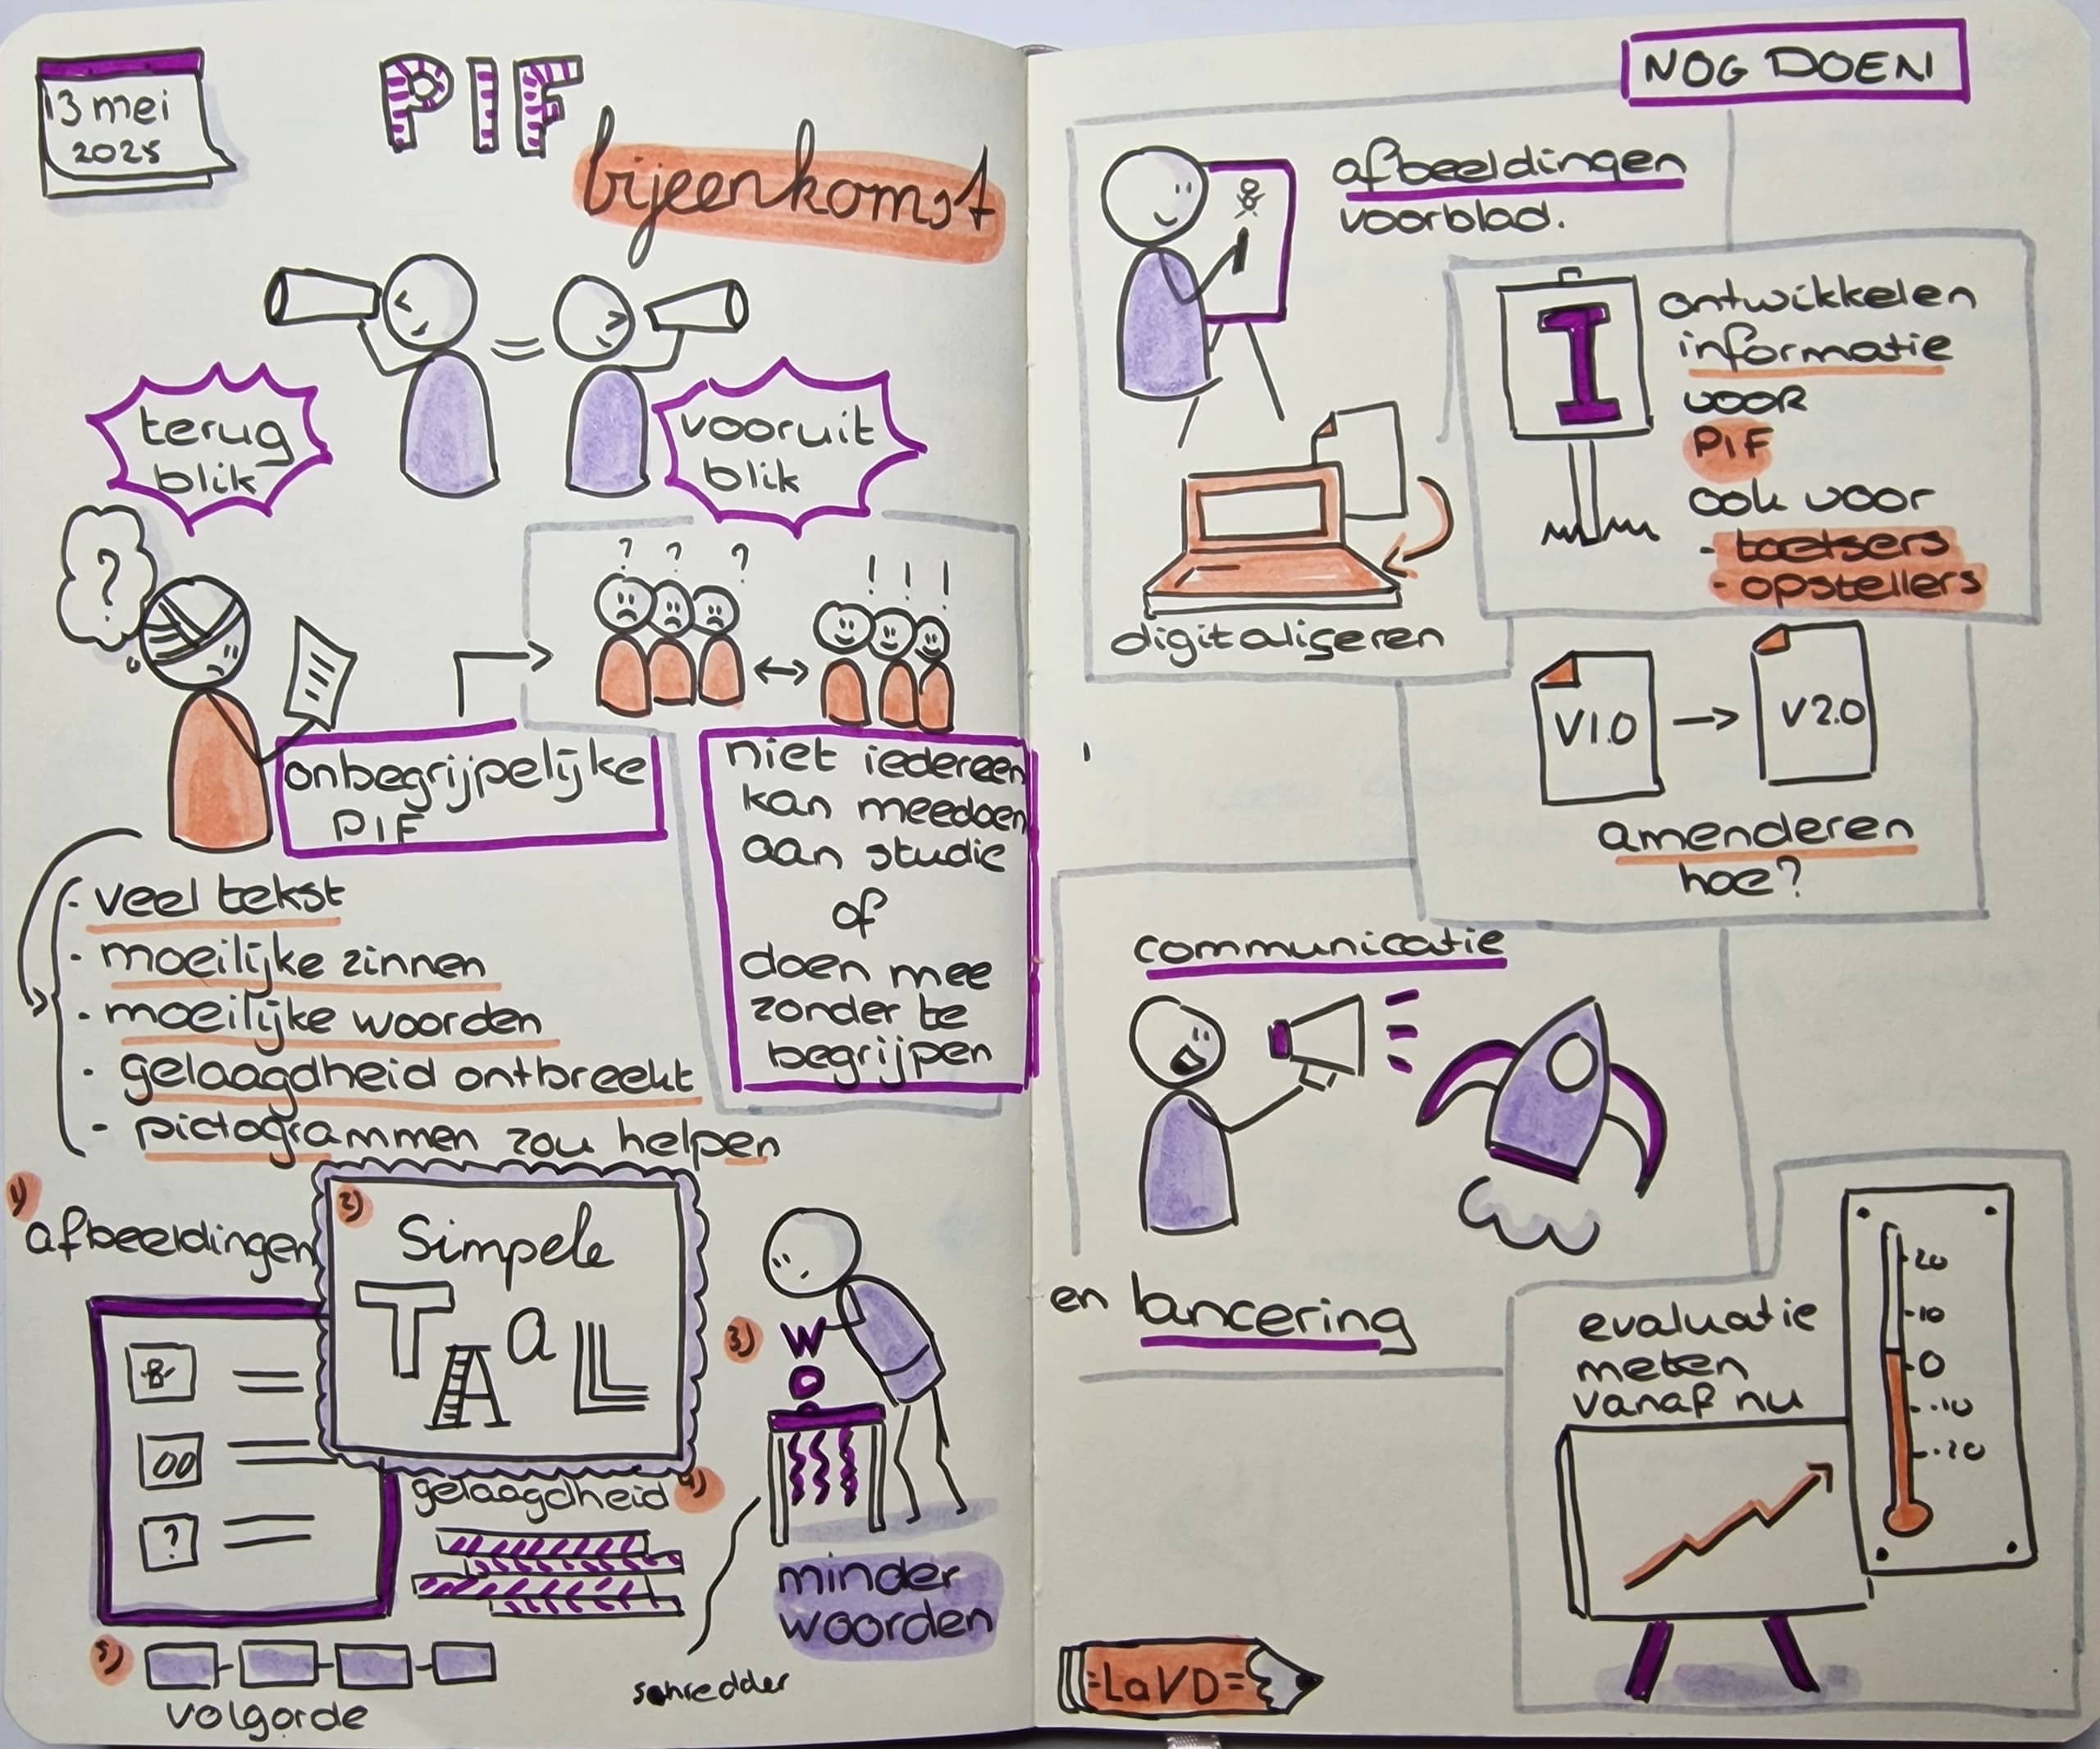 13 mei
2025
PIF
bijeenkomst
terug
blik
vooruit
blik
?
? ? ?
! ! !
onbegrijpelijke
PIF
niet iedereen
kan meedoen
aan studie
of
doen mee
zonder te
begrijpen
- veel tekst
- moeilijke zinnen
- moeilijke woorden
- gelaagdheid ontbreekt
- pictogrammen zou helpen
1)
afbeeldingen
?
2)
Simpele
TAaL
3)
W
O
minder
woorden
schredder
gelaagdheid 4)
5)
volgorde
NOG DOEN
afbeeldingen
voorblad.
digitaliseren
I
ontwikkelen
informatie
voor
PIF
ook voor
- toetsers
- opstellers
V1.0
V2.0
amenderen
hoe?
communicatie
en lancering
evaluatie
meten
vanaf nu
20
10
0
-10
-20
=LaVD=